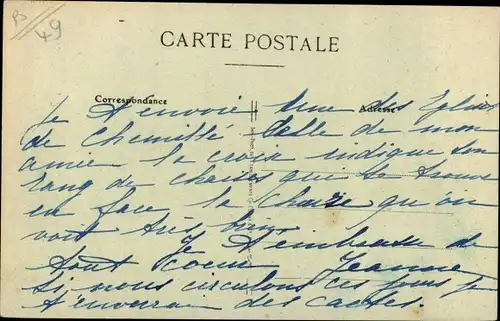 B
49
CARTE POSTALE
Correspondance
Adresse
Je t'envoie une des Eglises
de Chemillé celle de mon
amie la croix indique son
rang de chaises qui se trouve
en face la chaire qu'on
voit très bien
Je t'embrasse de
tout coeur Jeanne
Si nous circulons ces jours je
t'enverrai des cartes.